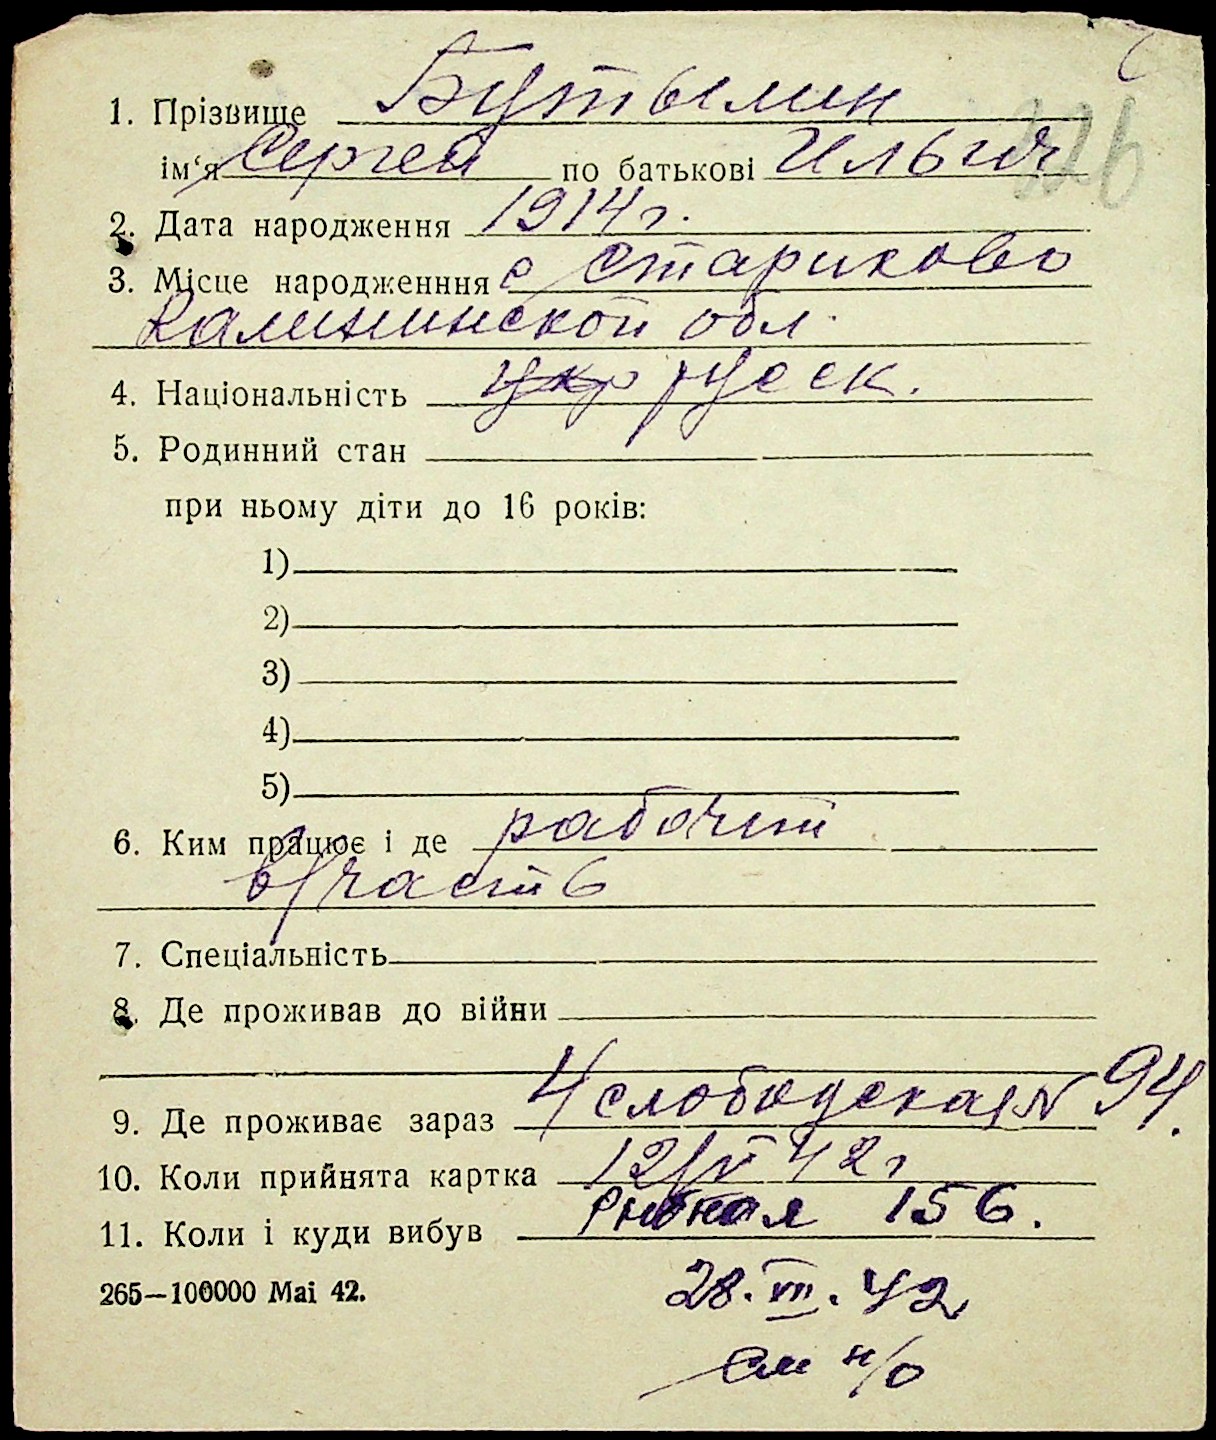 226
1. Прізвище Бутылин
ім‘я Сергей по батькові Ильич
2. Дата народження 1914 г.
3. Місце народженння с Стариково
Калининской обл.
4. Національність укр русск.
5. Родинний стан
при ньому діти до 16 років:
1)
2)
3)
4)
5)
6. Ким працює і де рабочий
в/часть
7. Спеціальність
8. Де проживав до війни
9. Де проживає зараз 4 слободская № 94.
10. Коли прийнята картка 12/VI 42 г
11. Коли і куди вибув Рыбная 156.
265—100000 Mai 42. 28. VII. 42
см н/о